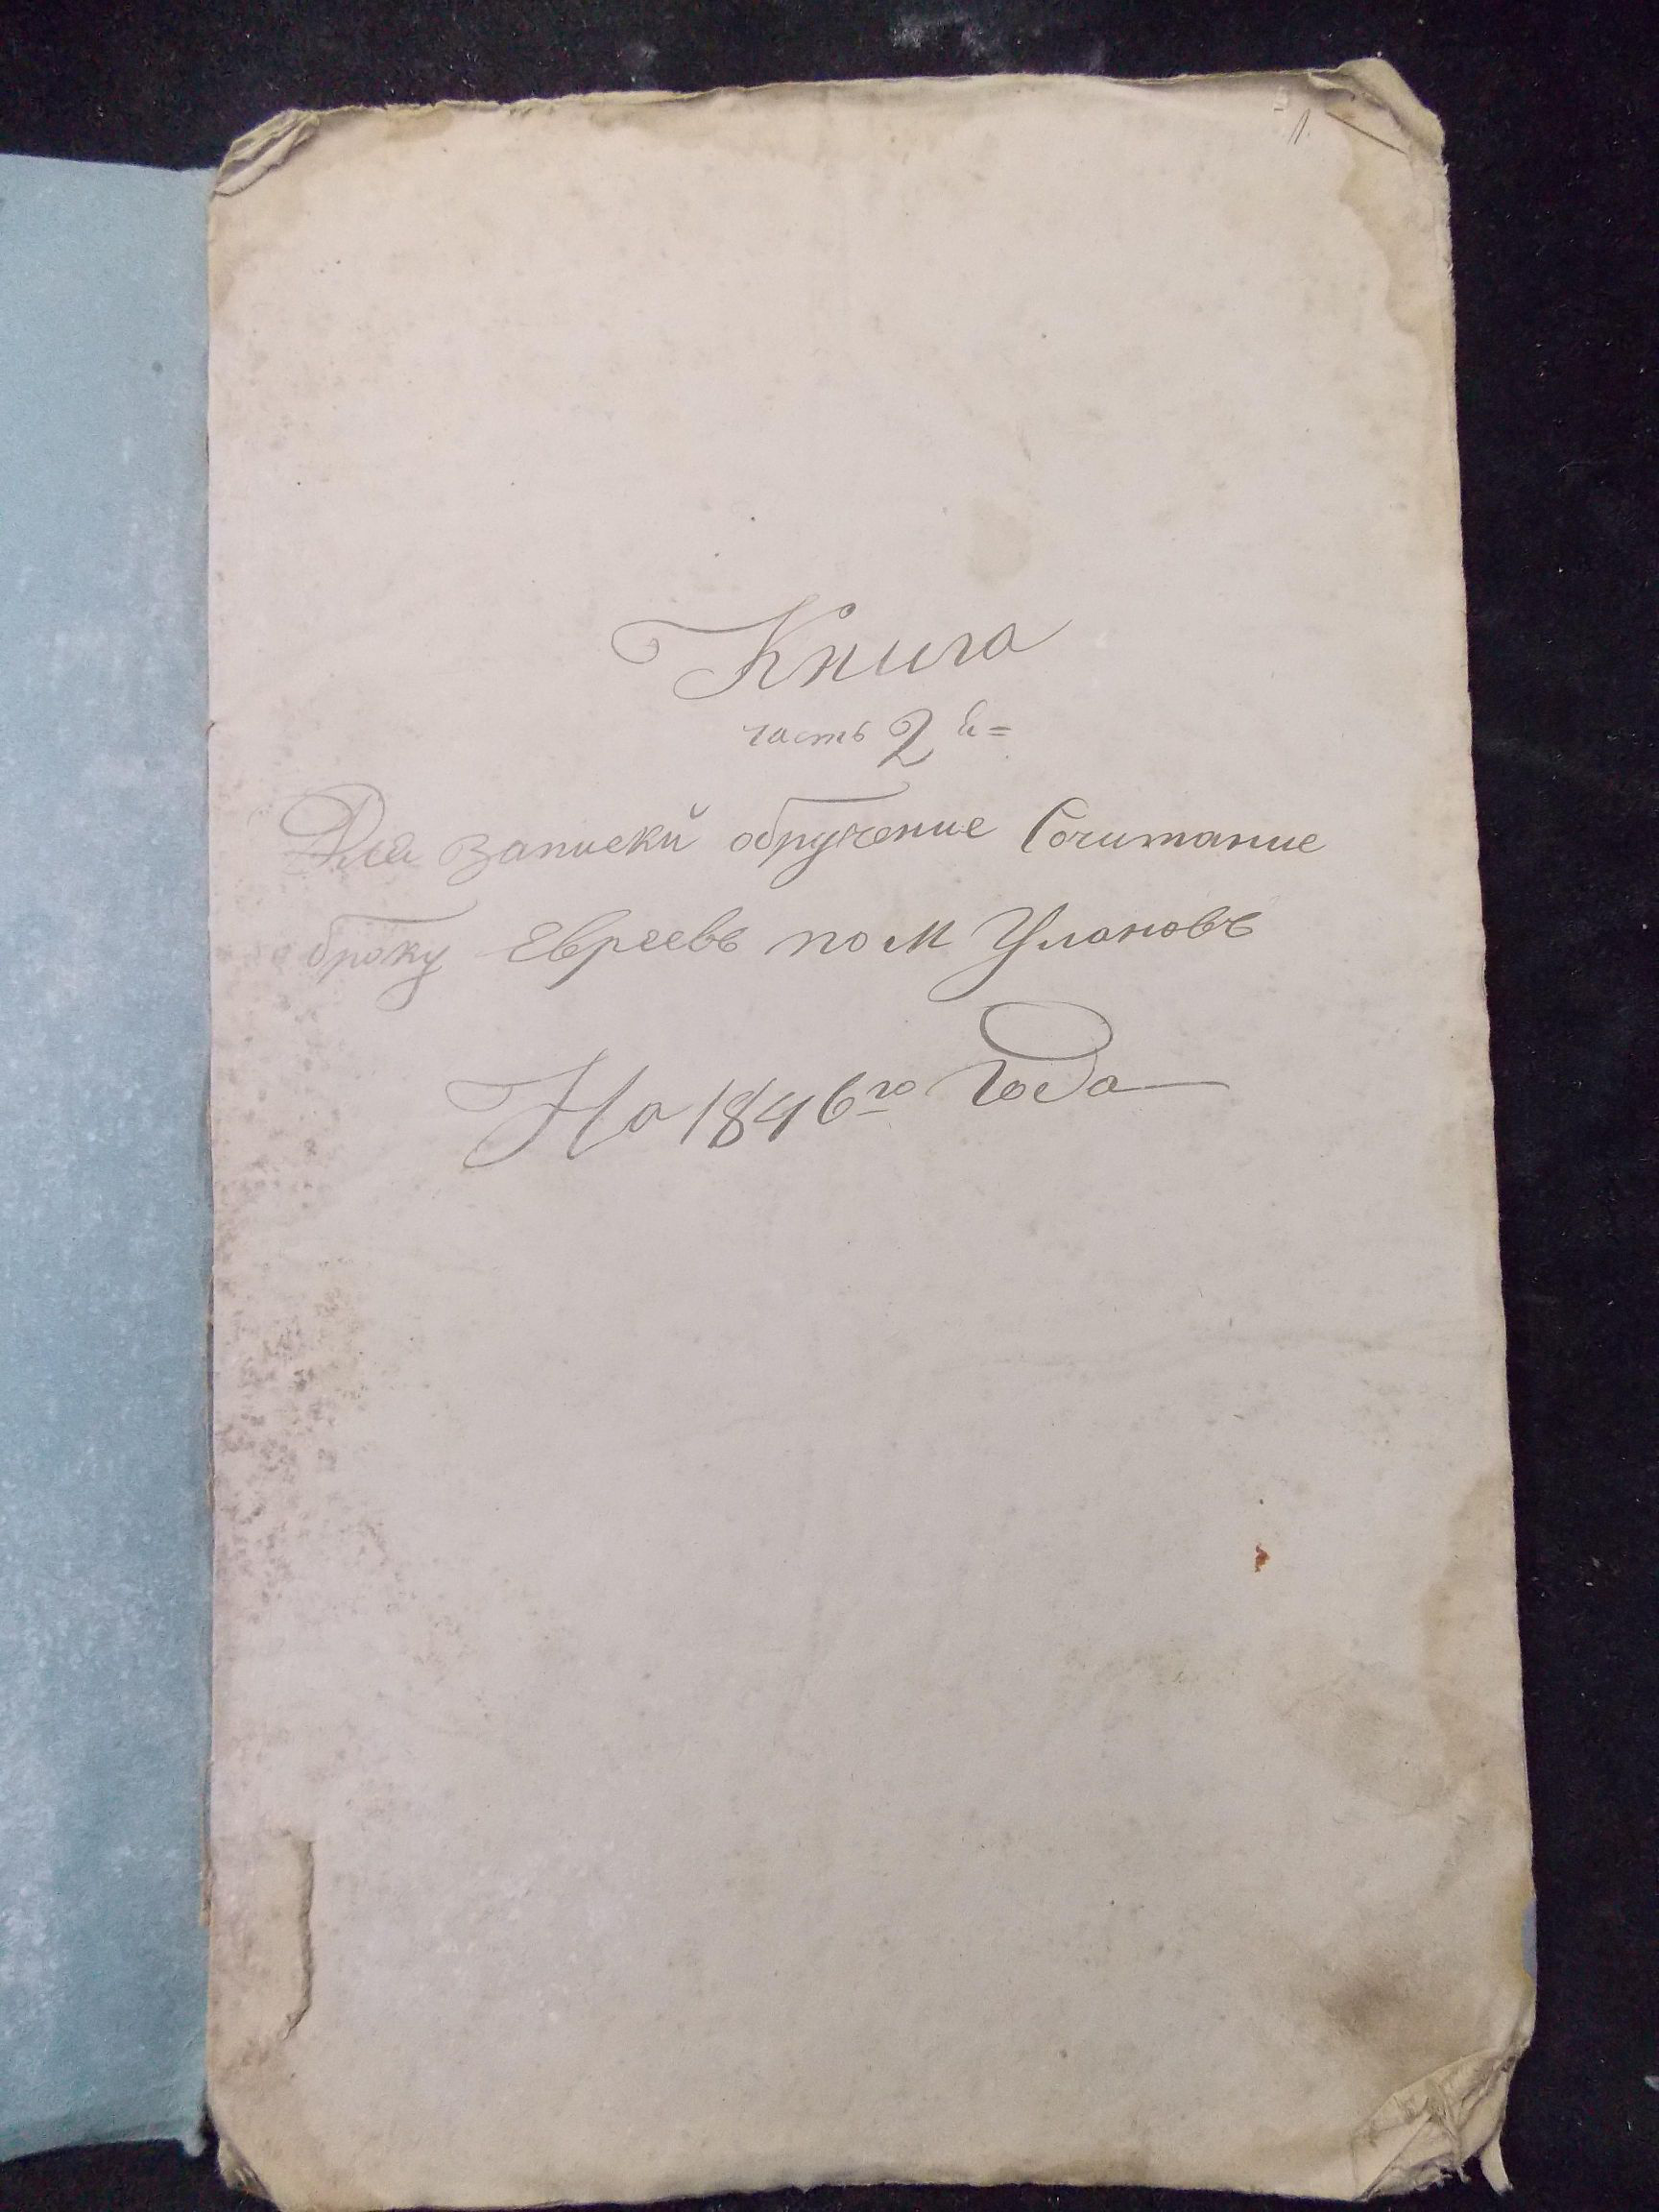 1.
Книга
часть 2 я=
Для записки обручение Сочитание
браку Евреевъ по м Улановъ
На 1846го Года